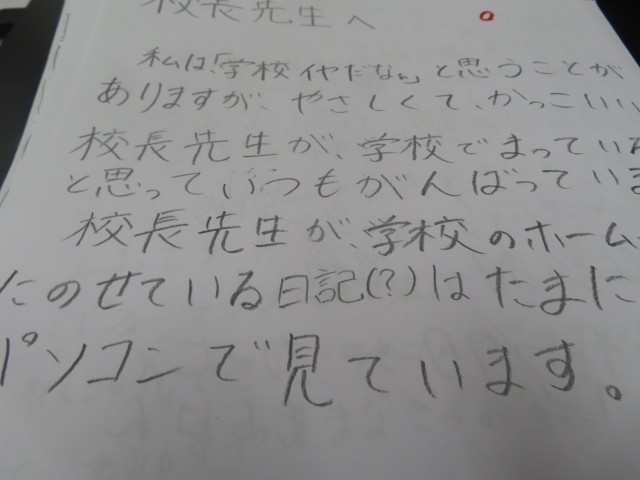 校長先生へ
私は、「学校イヤだな。」と思うことが
ありますが、やさしくて、かっこいい
校長先生が、学校でまっている
と思っていつもがんばっていま
校長先生が、学校のホーム
にのせている日記(?)はたまに
パソコンで見ています。